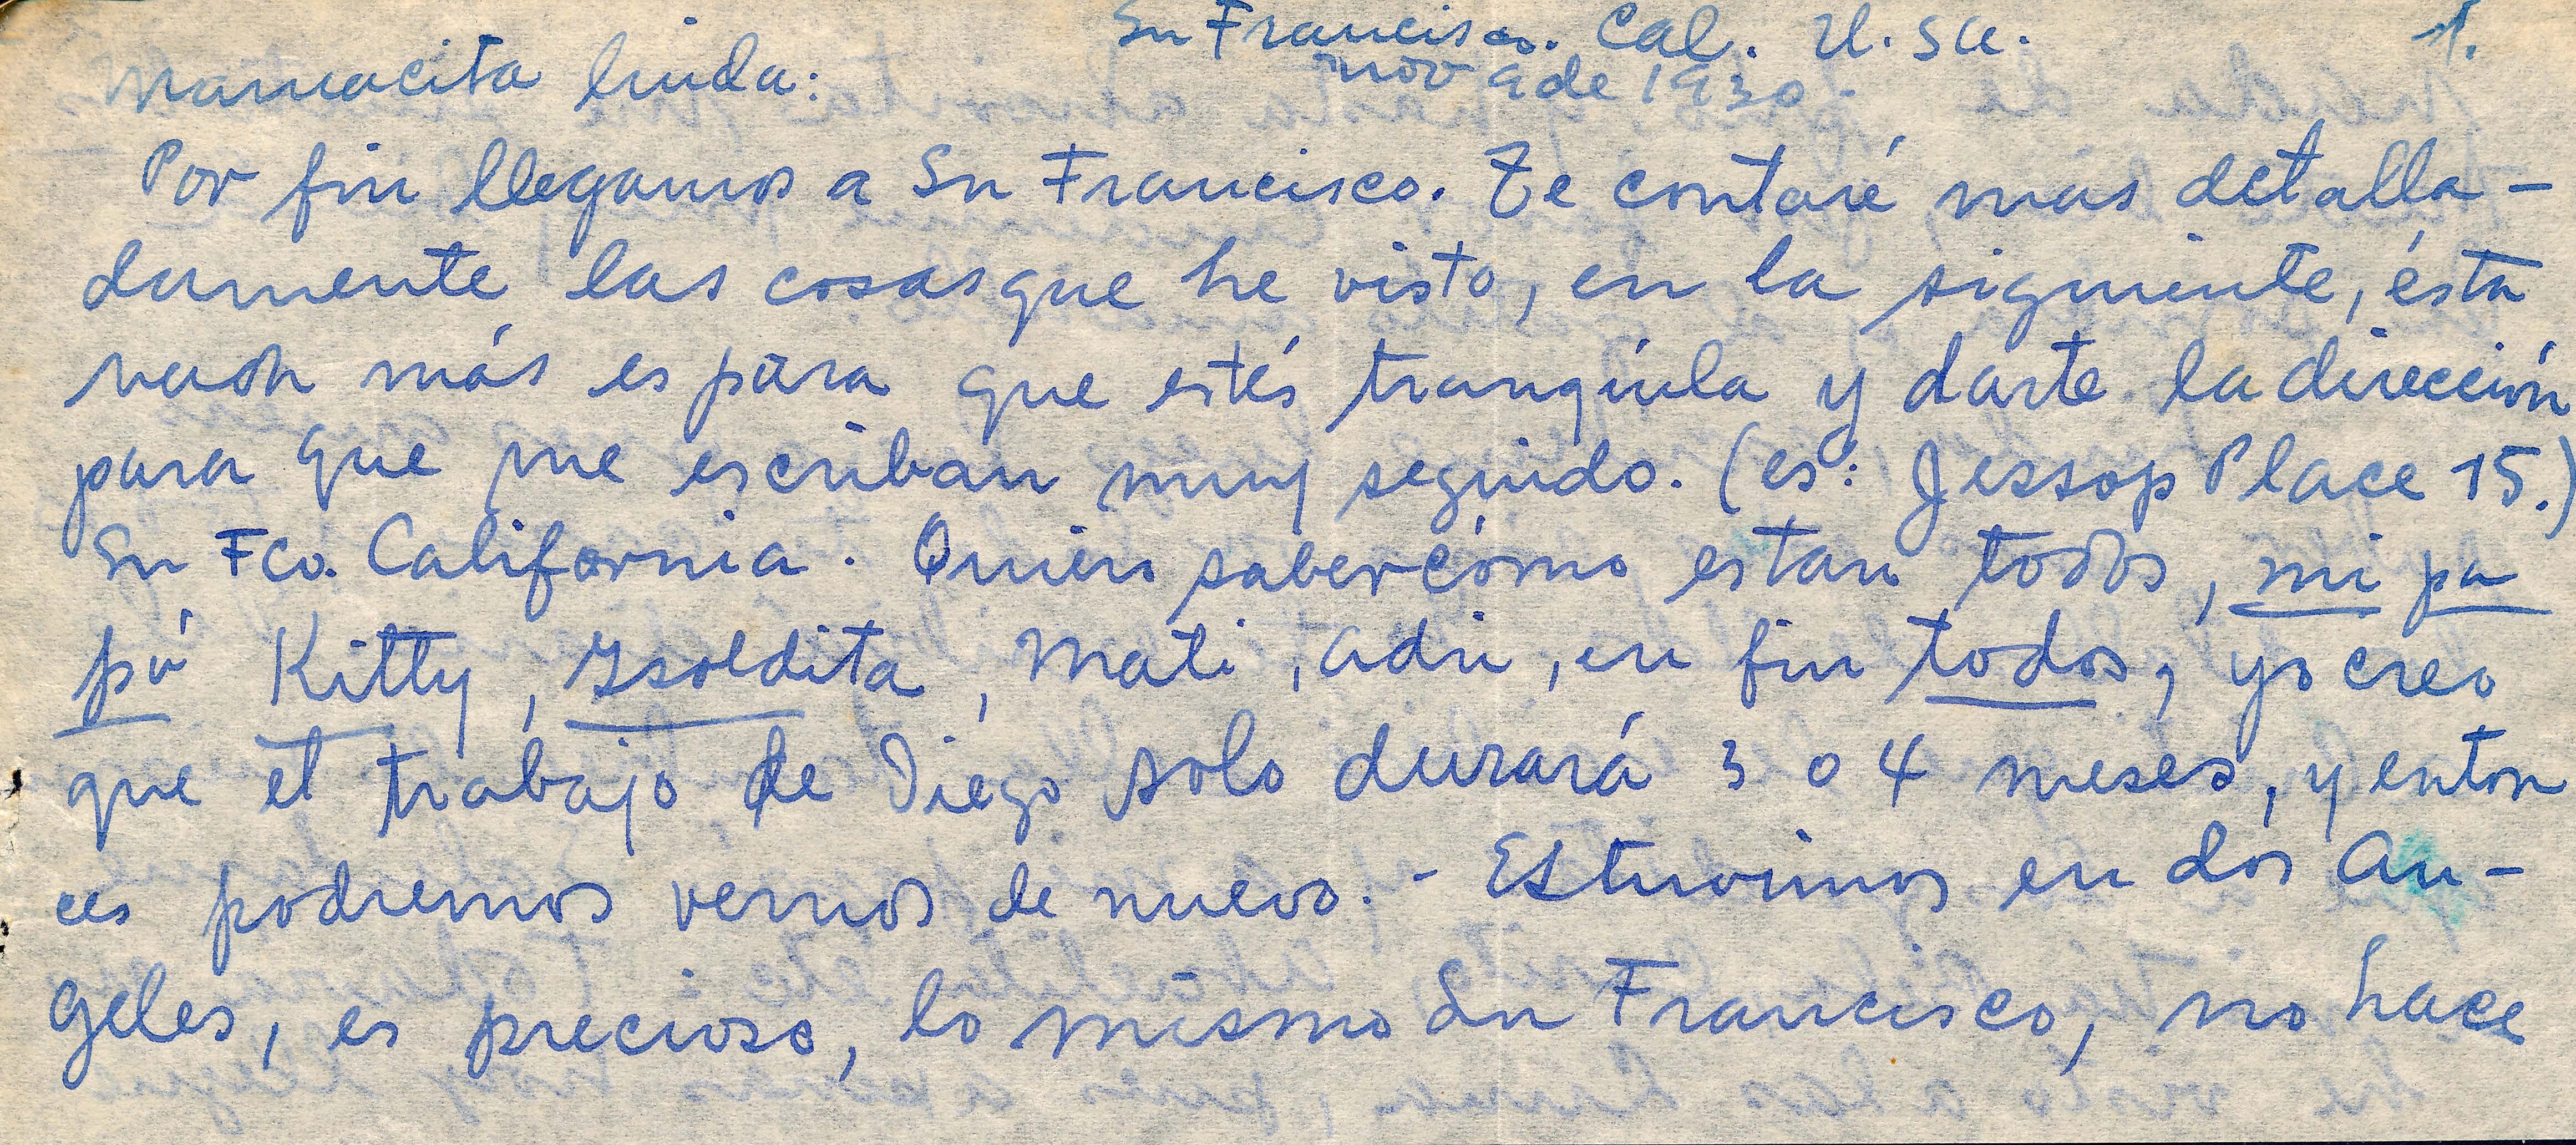 Sn Francisco. Cal. U. S. A. 1.
Nov 9 de 1930.
Mamacita linda:
Por fin llegamos a Sn Francisco. Te contaré mas detalla-
damente las cosas que he visto, en la siguiente, ésta
nada más es para que estés tranquila y darte la dirección
para que me escriban muy seguido. (es: Jessop Place 15.)
Sn Fco. California. Quien saber cómo estan todos, mi pa
pá Kitty, Isoldita, Mati, Adri, en fin todos, yo creo
que el trabajo de Diego solo durará 3 o 4 meses, y enton
ces podremos vernos de nuevo. - Estuvimos en Los An-
geles, es precioso, lo mismo Sn Francisco, no hace